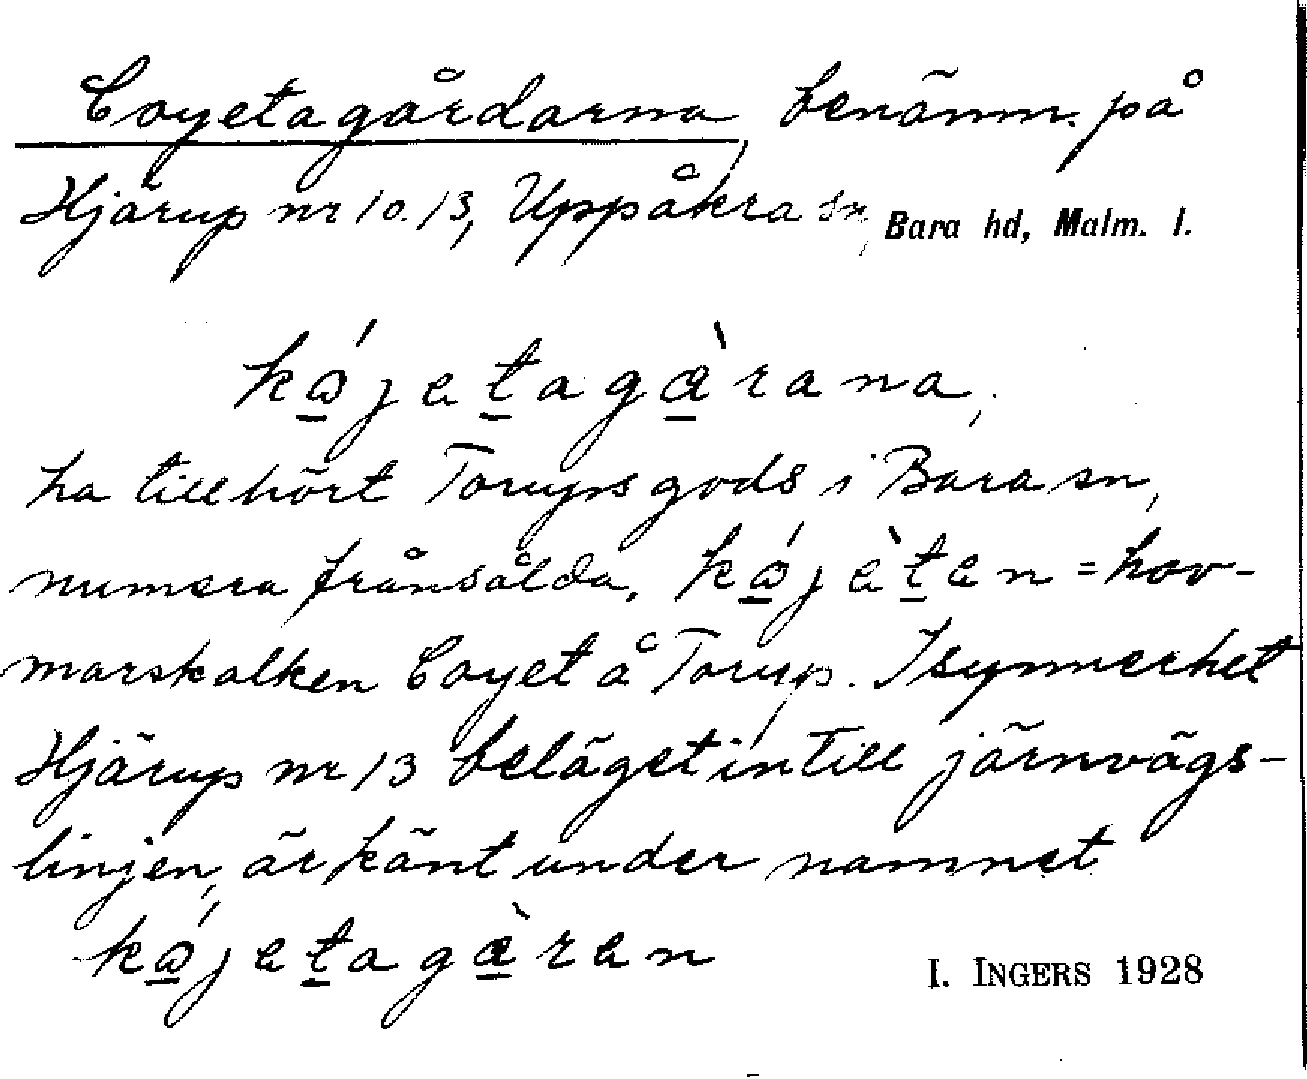 Coyetagårdarna benämn. på
Hjärup nr 10. 13, Uppåkra sn, Bara hd, Malm. l.
kǻjetagàrana,
ha tillhört Torups gods i Bara sn,
numera frånsålda. kǻjèten = hov-
marskalken Coyet å Torup. Isynnerhet
Hjärup nr 13 beläget intill järnvägs-
linjen, är känt under namnet
kǻjetagàren
I. INGERS 1928